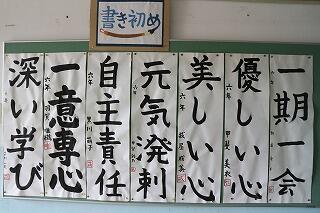 書き初め
一期一会
優しい心
六年
美しい心
六年
元気溌剌
自主責任
六年
一意専心
六年
深い学び